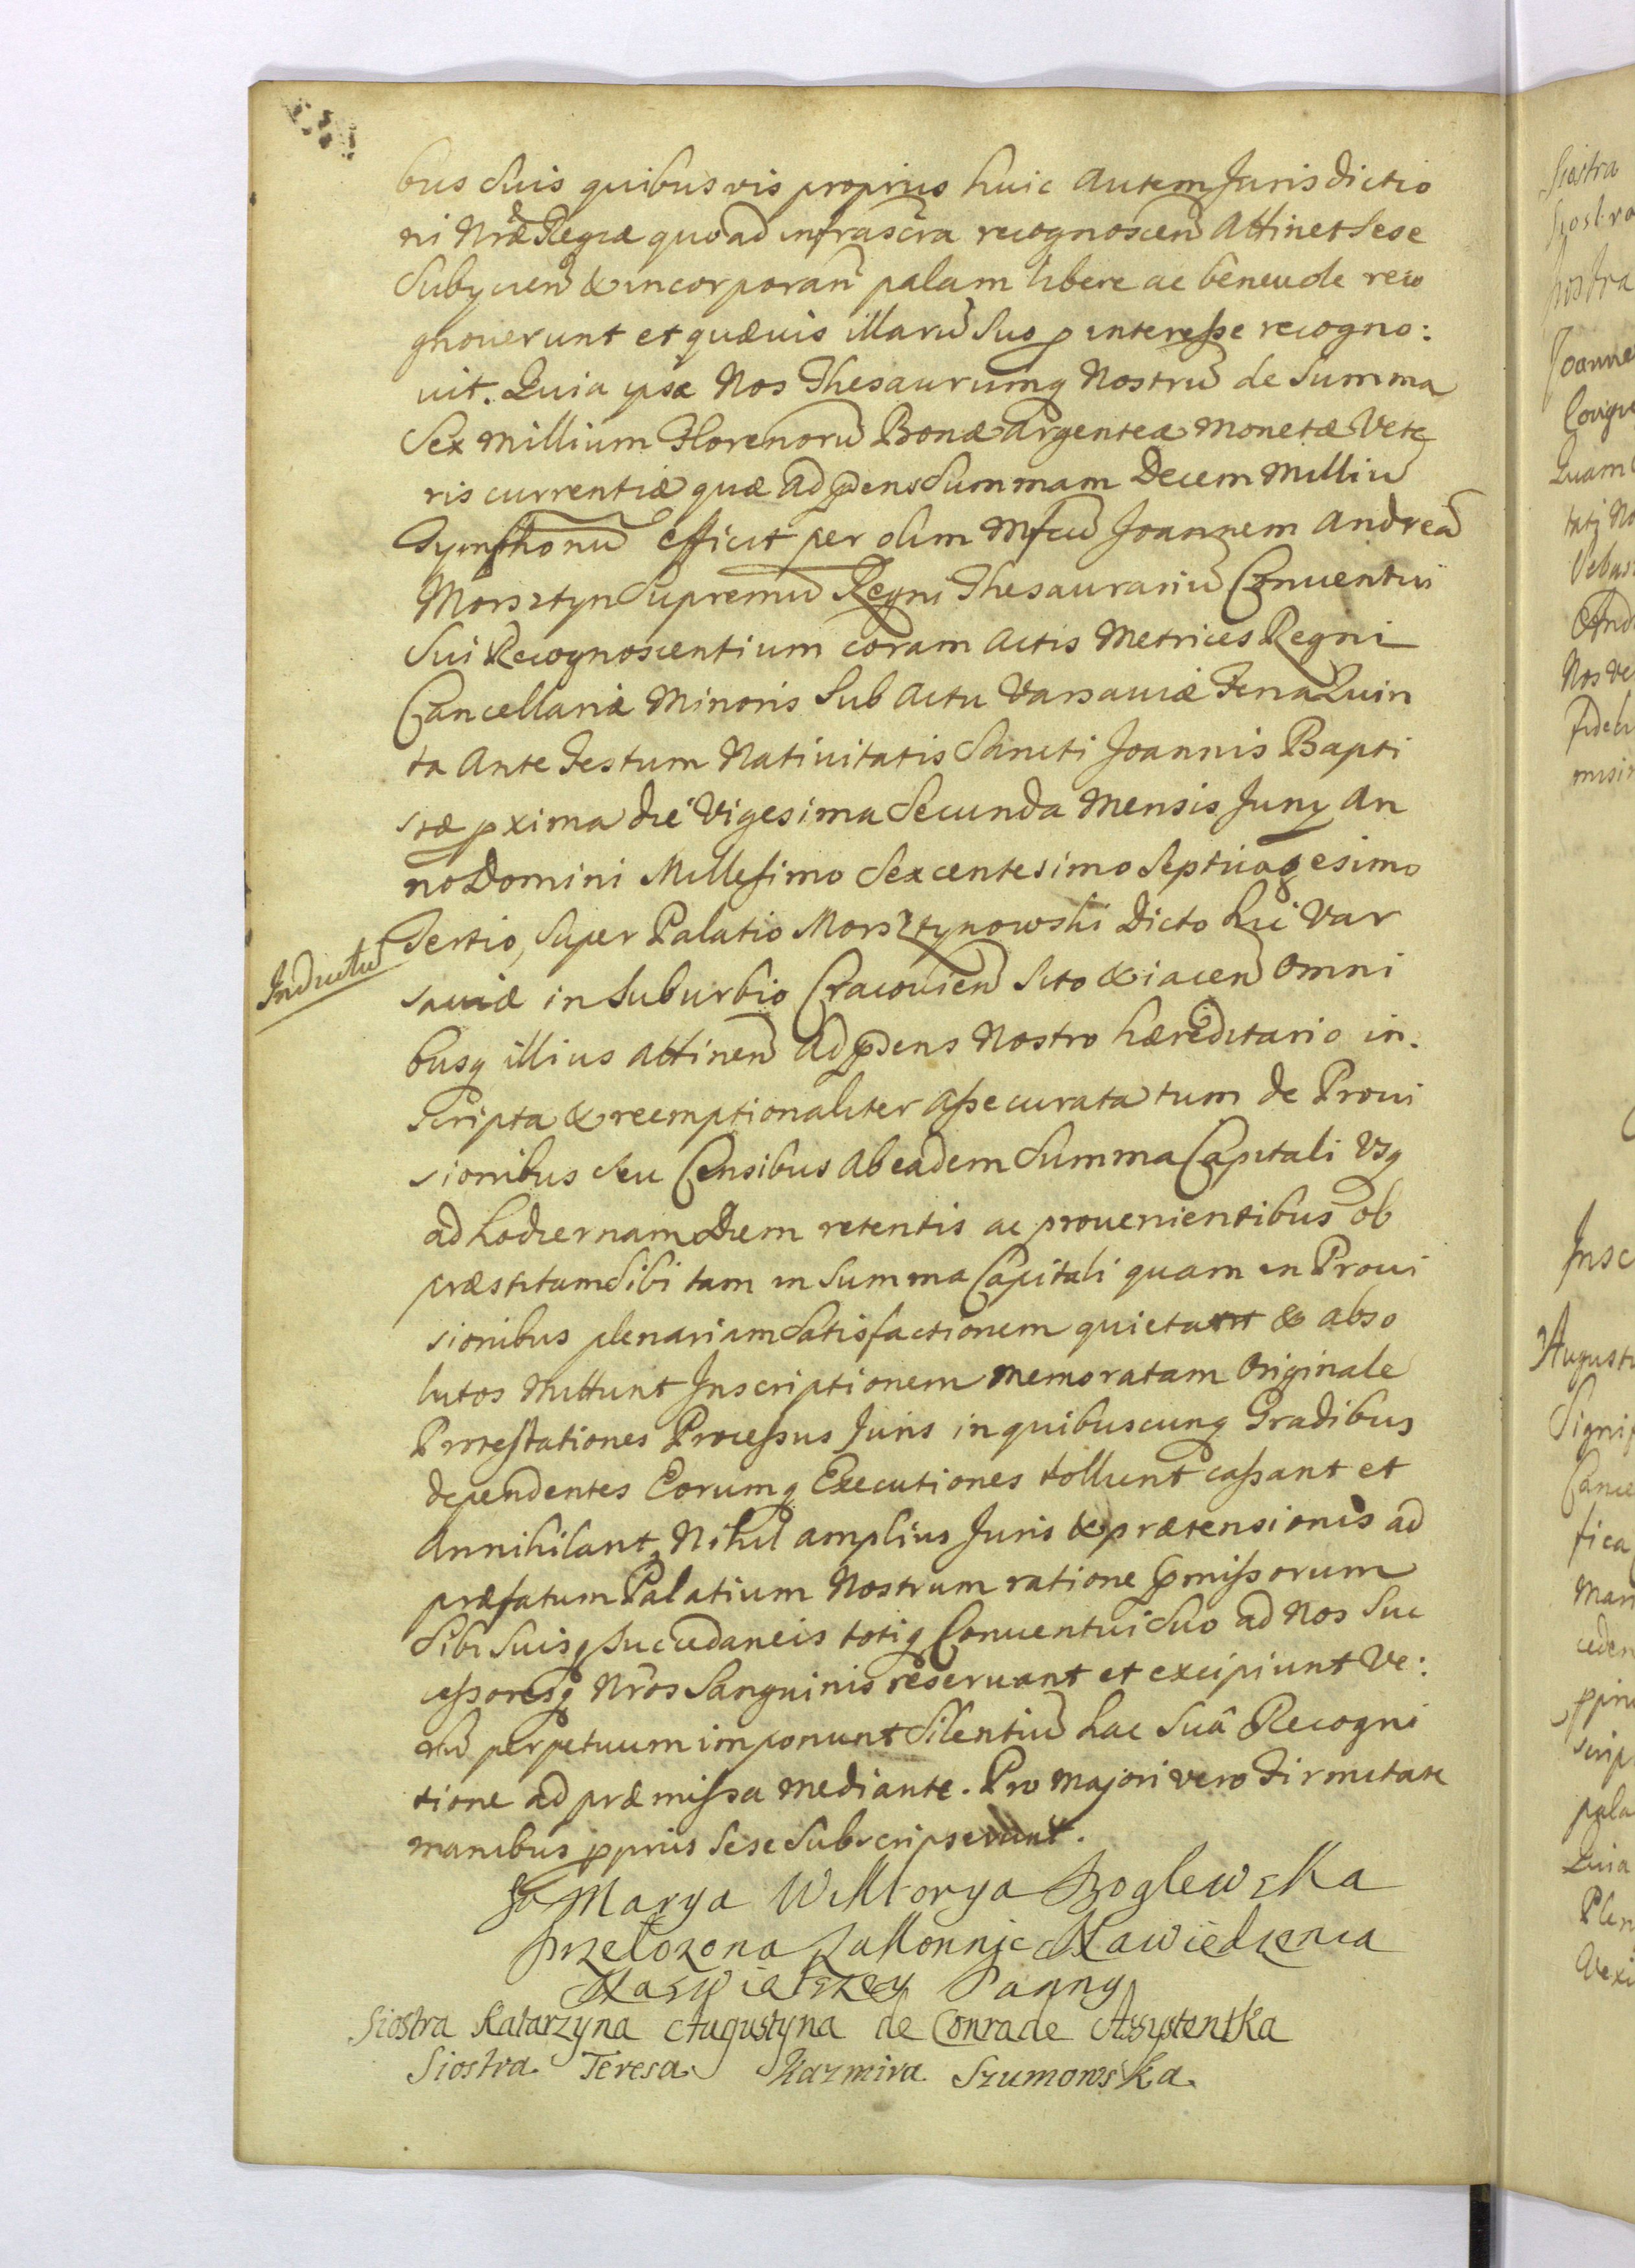 bus suis quibusvis proprius huic autem Jurisdictio
ni Nrae Regiae quoad infrascra recognoscen attinet sese
Subycien & incorporan palam libere ac beneuole reco
gnouerunt et quaeuis illaru suo p interesse recogno:
uit. Quia ipsae Nos Thesaurumq Nostru de Summa
Sex Millium Florenoru Bonae Argenteae Monetae Vete
ris currentiae quae ad pdens Summam Decem Milliu
Tymphonu efficit per olim Mfcu Joannem Andrea
Morsztyn Supremu Regni Thesaurariu Conuentui
Sui Recognoscentium coram Actis Metrices Regni
Cancellariae Minoris Sub Actu Varsauiae Feria Quin
ta Ante Festum Natiuitatis Sancti Joannis Bapti
stae pxima die Vigesima Secunda Mensis Juny An
no Domini Millesimo Sexcentesimo Septuagesimo
Tertio, Super Palatio Morsztynowski Dicto hic Var
Inductu
sauiae in Suburbio Cracouien Sito & iacen Omni
busq illius attinen ad pdens Nostro haereditario in:
scripta & reemptionaliter assecurata tum de Proui
sionibus seu Censibus ab eadem Summa Capitali Usq
ad hodiernam Diem retentis ac prouenientibus ob
praestitam Sibi tam in Summa Capitali quam in Proui
sionibus plenariam Satisfactionem quietant & abso
lutos Mittunt Inscriptionem memoratam Originale
Protestationes Processus Juris in quibuscunq Gradibus
dependentes Eorumq Executiones tollunt cassant et
Annihilant, Nihil amplius Juris & praetensionis ad
praefatum Palatium Nostrum ratione pmissorum
Sibi Suisq Succedaneis totiq Conuentui Suo ad Nos Suc
cessoresq Nros Sanguinis reseruant et excipiunt Ve:
ru perpetuum imponunt Silentiu hac Suâ Recogni
tione ad praemissa mediante. Pro majori vero Firmitate
manibus pprius sese Subscripserunt.
Ja Marya Wiktorya Boglewska
przełozona zakonnic Nawiedzenia
Naswietszey Panny
Siostra Katarzyna Augustyna de Conrade Assystentka
Siostra Teresa Kazmira Szumowska